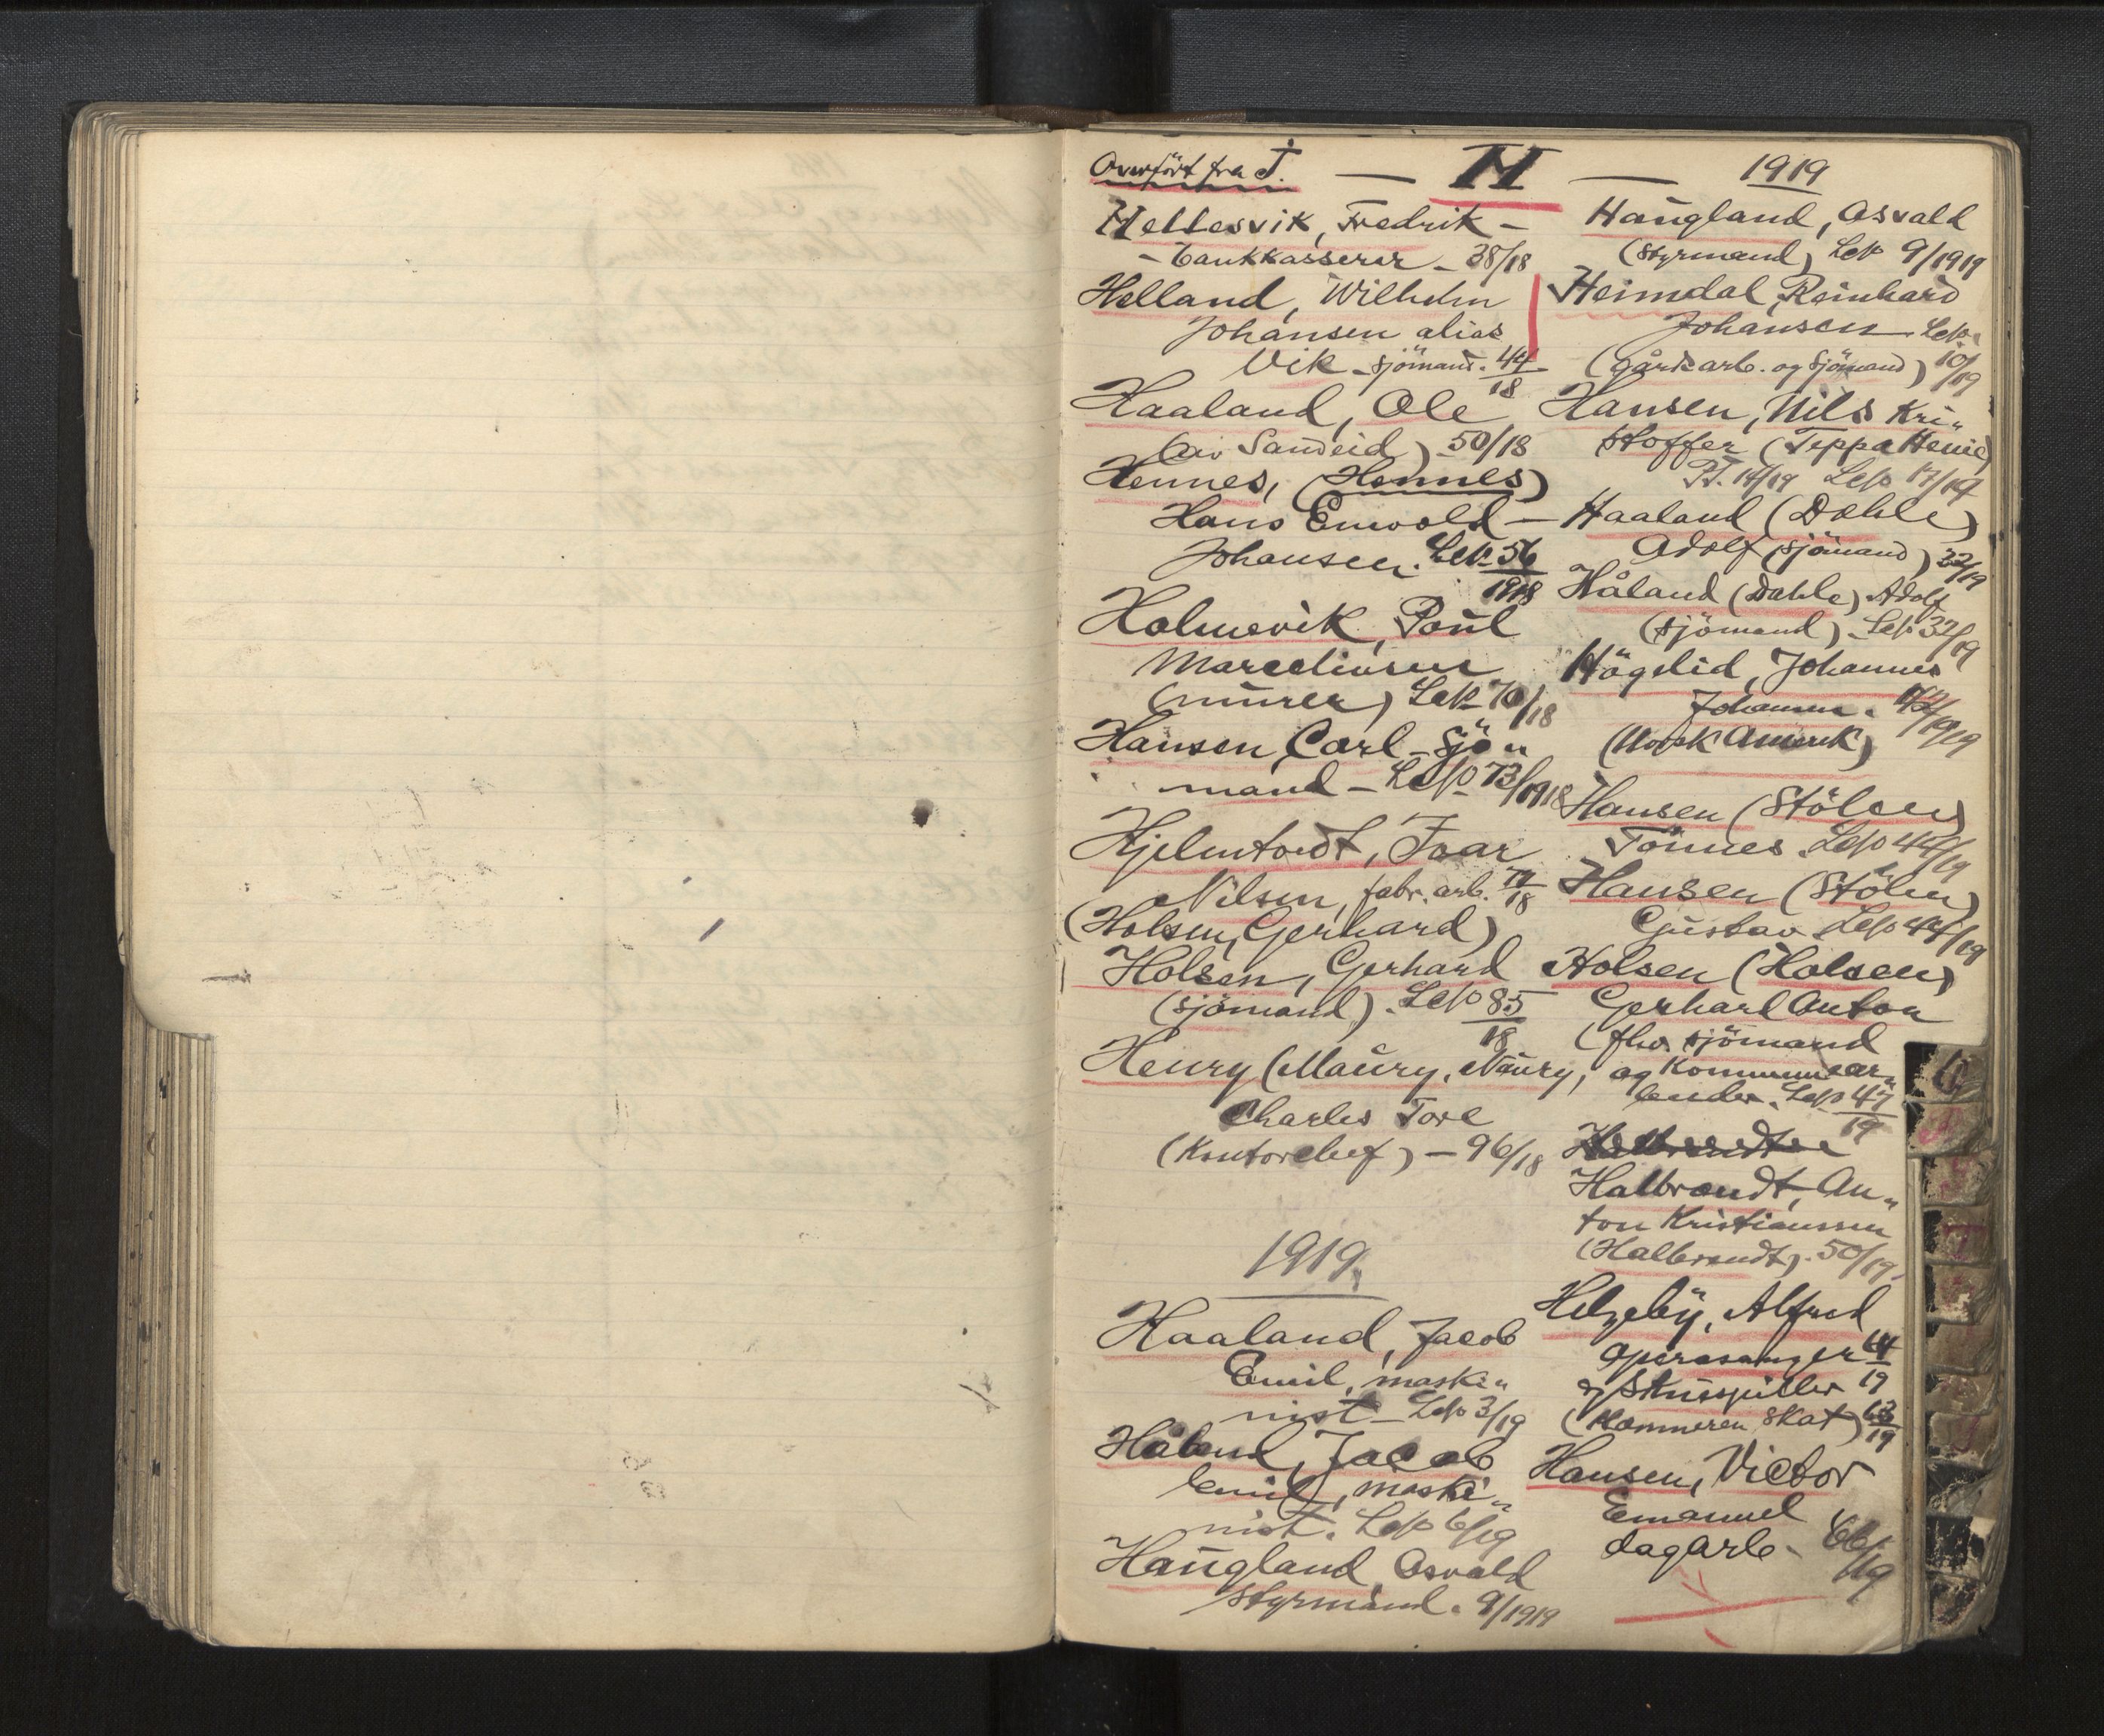 Overført fra I.
— H —
1919
Hellesvik, Fredrik -
- bankkasserer - 38/18
Helland, Wilhelm
Johansen alias
Vik - sjömand. 44/18
Haaland, Ole
(av Sandeid) - 50/18
Hennes, (Hennes)
Hans Enwold -
Johansen. Lep 56/1918
Holmevik, Paul
Marcelinsen
(murer) Lep 70/18
Hansen, Carl - sjö„
mand - Lep 73/1918
Hjelmtvedt, Ivar
Nilsen, fabr. arb. 77/18
(Holsen, Gerhard)
Holsen, Gerhard
(sjömand). Lep 85/18
Henry (Maury, Naury,
Charles Tore
(Kontorchef) - 96/18
1919.
Haaland, Jacob
Emil, maski„
nist - Lep 3/19
Håland, Jacob
Emil, maski„
nist. Lep 6/19
Haugland, Osvald
Styrmand. 9/1919
Haugland, Osvald
(Styrmand) Lep 9/1919
Heimdal, Reinhard
Johansen Lep.
(gårdsarb. og sjömand) 10/19
Hansen, Nils Kri„
stoffer (Teppa Henie)
P.T. 14/19 Lep 17/19
Haaland (Dahle)
Adolf (sjömand) 32/19
Håland (Dahle) Adolf
(sjömand). Lep 32/19
Högelid, Johannes
Johansen. 42/1919
(Norsk Amerik)
Hansen (Stölen)
Tönnes. Lep 44/19
Hansen (Stölen)
Gustav. Lep 44/19
Holsen (Holsen)
Gerhard Anton
(fhv. sjömand
og Kommunear„
beider. Lep 47/19
Halbrandt, An„
ton Kristiansen
(Halbrandt). 50/19
Helzeby, Alfred
Operasanger 61/19
og Skuespiller
(Kammeren Skat) 63/19
Hansen, Victor
Emanuel
dagarb - 66/19